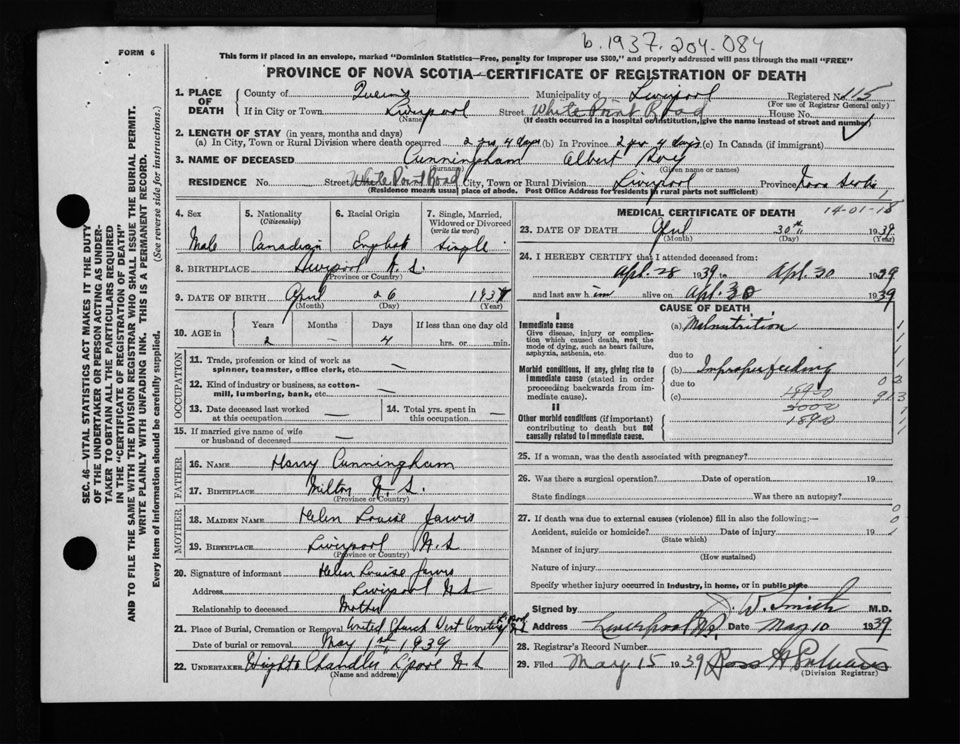 b. 1937. 204-084
FORM 6
This form if placed in an envelope, marked "Dominion Statistics—Free, penalty for improper use $300," and properly addressed will pass through the mail "FREE"
PROVINCE OF NOVA SCOTIA—CERTIFICATE OF REGISTRATION OF DEATH
SEC. 46—VITAL STATISTICS ACT MAKES IT THE DUTY
OF THE UNDERTAKER OR PERSON ACTING AS UNDER-
TAKER TO OBTAIN ALL THE PARTICULARS REQUIRED
IN THE "CERTIFICATE OF REGISTRATION OF DEATH"
AND TO FILE THE SAME WITH THE DIVISION REGISTRAR WHO SHALL ISSUE THE BURIAL PERMIT.
WRITE PLAINLY WITH UNFADING INK. THIS IS A PERMANENT RECORD.
Every item of information should be carefully supplied. (See reverse side for instructions.)
1. PLACE OF DEATH
County of Queens Municipality of Liverpool Registered No. 115
(For use of Registrar General only)
If in City or Town Liverpool Street White Point Road House No.
(Name) (If death occurred in a hospital or institution, give the name instead of street and number)
2. LENGTH OF STAY (in years, months and days)
(a) In City, Town or Rural Division where death occurred 2 yrs. 4 days (b) In Province 2 yrs. 4 days (c) In Canada (if immigrant)
3. NAME OF DECEASED Cunningham Albert
(Surname) (Given name or names)
RESIDENCE No. Street White Point Road City, Town or Rural Division Liverpool Province Nova Scotia
(Residence means usual place of abode. Post Office Address for residents in rural parts not sufficient)
4. Sex
Male
5. Nationality
(Citizenship)
Canadian
6. Racial Origin
English
7. Single, Married, Widowed or Divorced
(write the word)
Single
8. BIRTHPLACE Liverpool N. S.
(Province or Country)
9. DATE OF BIRTH April 26 1937
(Month) (Day) (Year)
10. AGE in Years Months Days If less than one day old
2 — 4 hrs. or min.
OCCUPATION
11. Trade, profession or kind of work as
spinner, teamster, office clerk, etc. —
12. Kind of industry or business, as cotton-
mill, lumbering, bank, etc. —
13. Date deceased last worked
at this occupation —
14. Total yrs. spent in
this occupation —
15. If married give name of wife
or husband of deceased —
FATHER
16. NAME Harry Cunningham
17. BIRTHPLACE Milton N. S.
(Province or Country)
MOTHER
18. MAIDEN NAME Helen Louise Jarvis
19. BIRTHPLACE Liverpool N. S
(Province or Country)
20. Signature of informant Helen Louise Jarvis
Address Liverpool N.S.
Relationship to deceased Mother
21. Place of Burial, Cremation or Removal United Church West Cemetery
Date of burial or removal May 1st 1939
22. UNDERTAKER Wright & Chandler L'pool N S
(Name and address)
MEDICAL CERTIFICATE OF DEATH 14-01-18
23. DATE OF DEATH April 30th 1939
(Month) (Day) (Year)
24. I HEREBY CERTIFY that I attended deceased from:
Apl. 28 1939 to Apl. 30 1939
and last saw him alive on Apl. 30 1939
CAUSE OF DEATH
I
Immediate cause
Give disease, injury or complica-
tion which caused death, not the
mode of dying, such as heart failure,
asphyxia, asthenia, etc.
(a) Malnutrition
due to
Morbid conditions, if any, giving rise to
immediate cause (stated in order
proceeding backwards from im-
mediate cause).
(b) Improper feeding
due to
(c)
II
Other morbid conditions (if important)
contributing to death but not
causally related to immediate cause.
25. If a woman, was the death associated with pregnancy?
26. Was there a surgical operation? Date of operation 19
State findings Was there an autopsy?
27. If death was due to external causes (violence) fill in also the following:—
Accident, suicide or homicide? Date of injury 19
(State which)
Manner of injury
(How sustained)
Nature of injury
Specify whether injury occurred in industry, in home, or in public place
Signed by J. W. Smith M.D.
Address Liverpool N.S. Date May 10 1939
28. Registrar's Record Number
29. Filed May 15 1939
(Division Registrar)